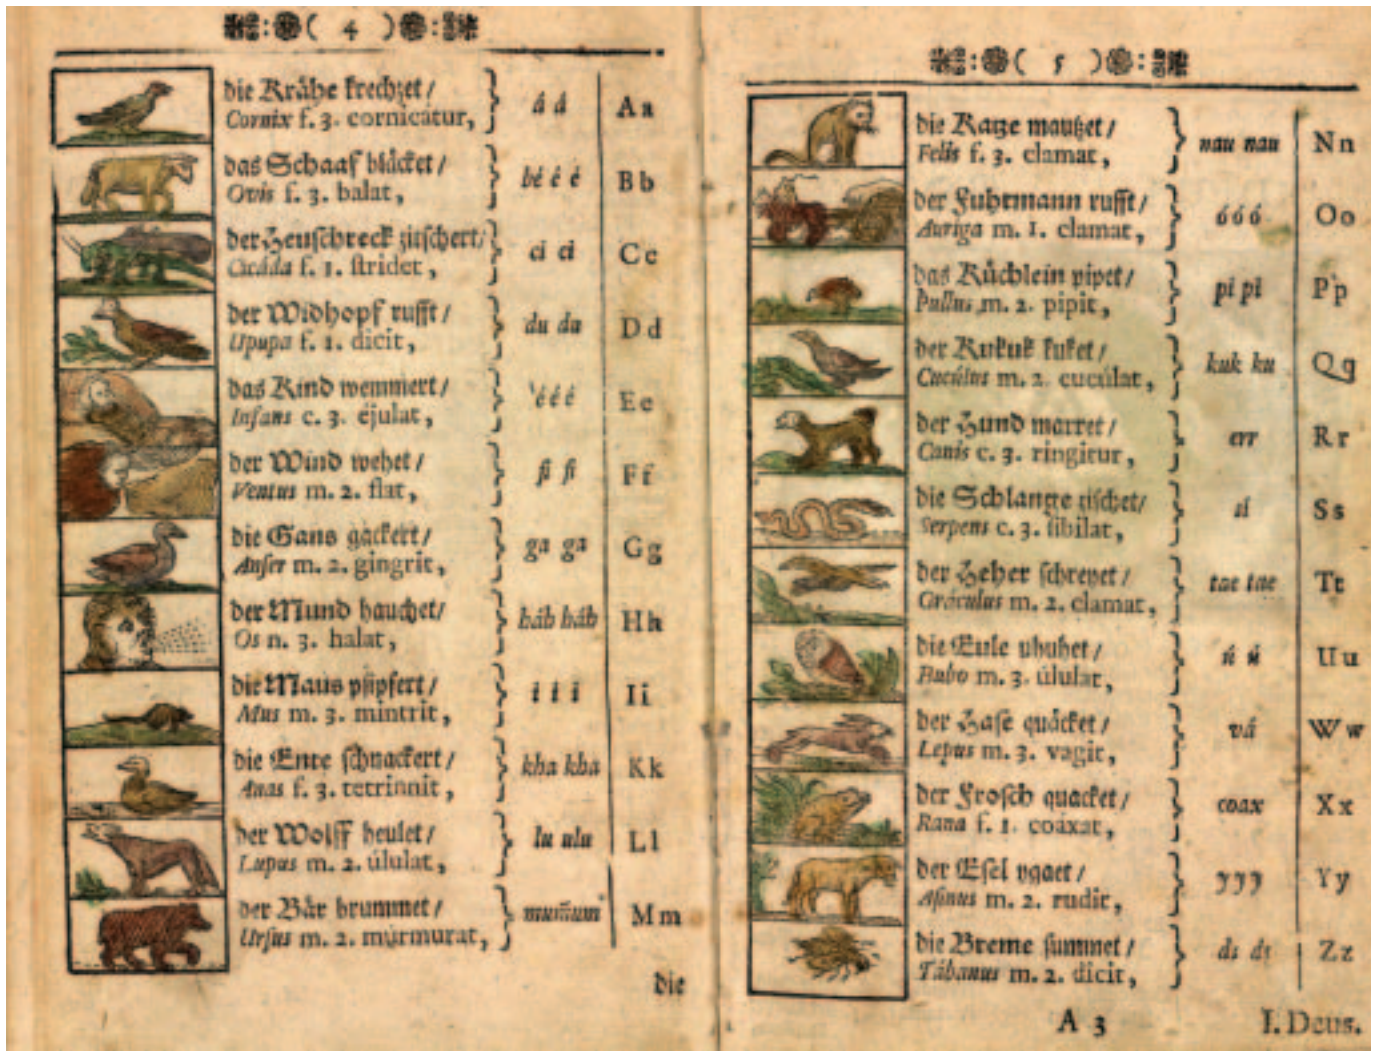 ( 4 )
die Krähe krechzet /
Cornix f. 3. cornicatur, á á Aa
das Schaaf blåcket /
Ovis f. 3. balat, bé é é Bb
der Heuschreck zitschert /
Cicáda f. 1. stridet, ci ci Cc
der Widhopf rufft /
Upupa f. 1. dicit, du du Dd
das Kind wemmert /
Infans c. 3. éjulat, é é é Ee
der Wind wehet /
Ventus m. 2. flat, fi fi Ff
die Gans gackert /
Anser m. 2. gingrit, ga ga Gg
der Mund hauchet /
Os n. 3. halat, háh háh Hh
die Maus pfipfert /
Mus m. 3. mintrit, i i i Ii
die Ente schnackert /
Anas f. 3. tetrinnit, kha kha Kk
der Wolff heulet /
Lupus m. 2. úlulat, lu ulu Ll
der Bår brummet /
Ursus m. 2. múrmurat, mum̄um Mm
die
( 5 )
die Katze mautzet /
Felis f. 3. clamat, nau nau Nn
der Fuhrmann rufft /
Auriga m. 1. clamat, ó ó ó Oo
das Kůchlein pipet /
Pullus m. 2. pipit, pi pi Pp
der Kukuk kuket /
Cucúlus m. 2. cucúlat, kuk ku Qq
der Hund marret /
Canis c. 3. ringitur, err Rr
die Schlange zischet /
Serpens c. 3. sibilat, si Ss
der Heher schreyet /
Gráculus m. 2. clamat, tae tae Tt
die Eule uhuhet /
Bubo m. 3. úlulat, ú ú Uu
der Hase quåcket /
Lepus m. 3. vagit, vá Ww
der Frosch quacket /
Rana f. 1. coáxat, coax Xx
der Esel ygaet /
Asinus m. 2. rudit, y y y Yy
die Breme summet /
Tábanus m. 2. dicit, ds ds Zz
A 3 I. Deus.